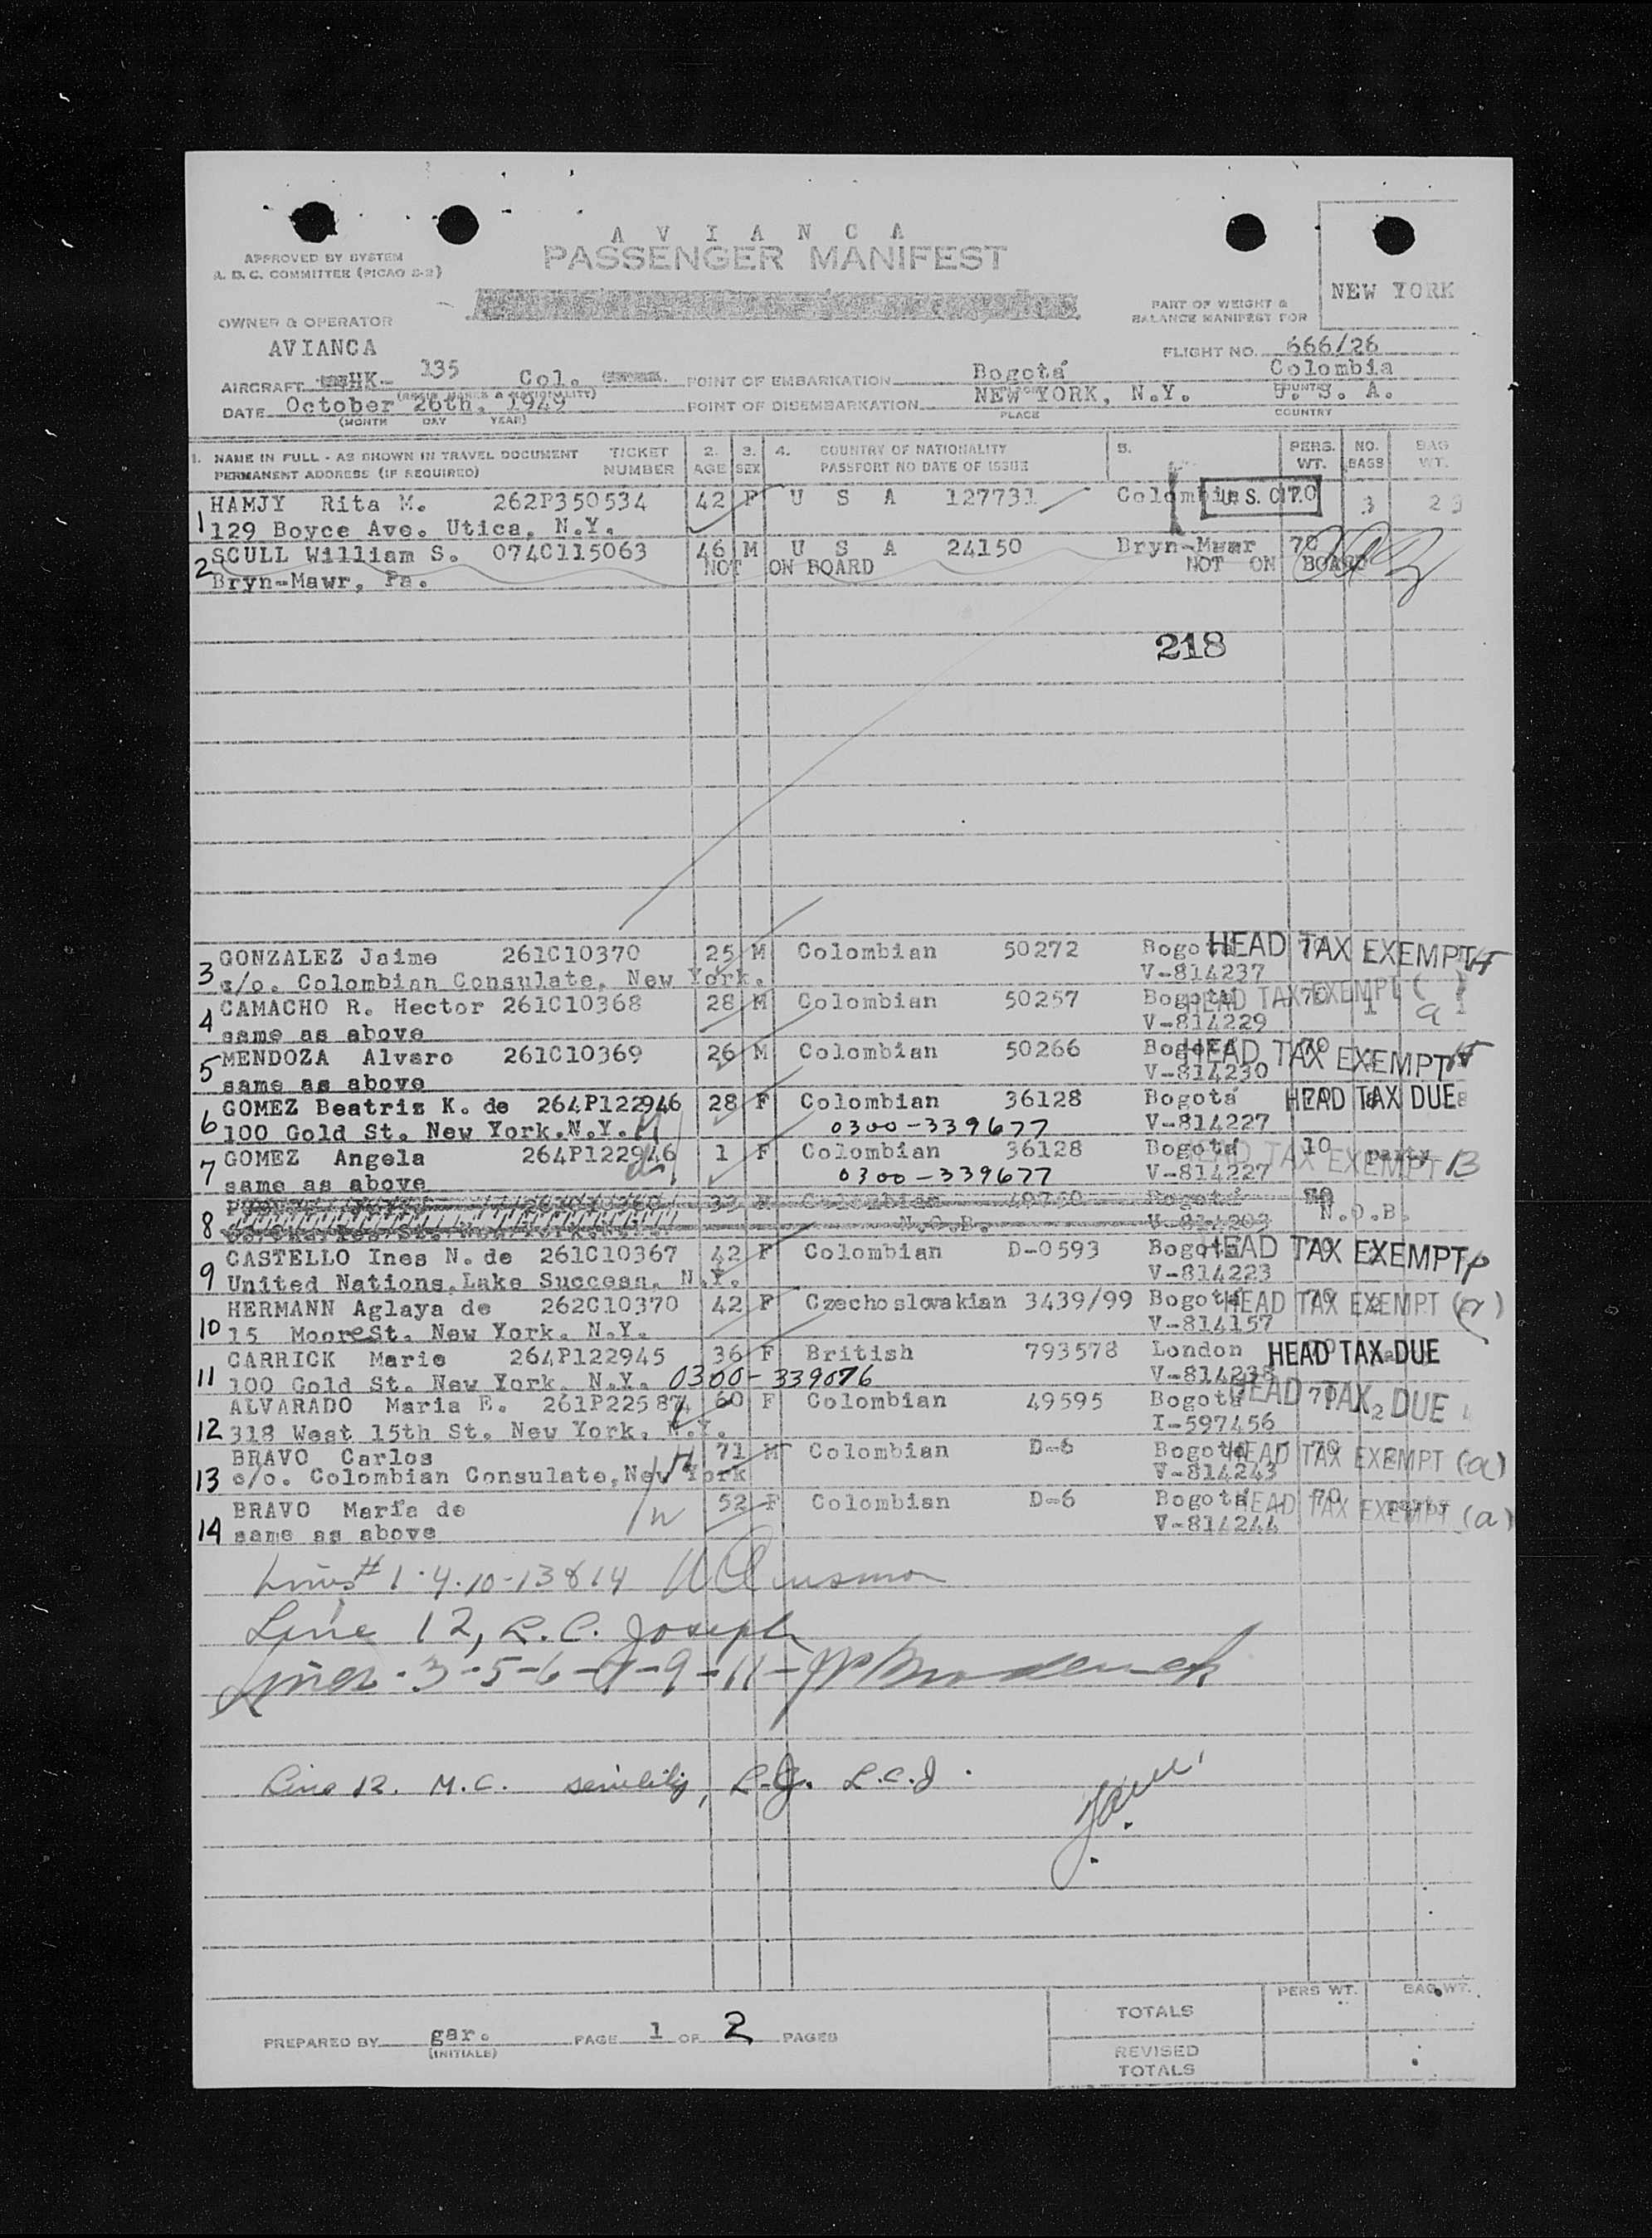 A V I A N C A
PASSENGER MANIFEST
APPROVED BY SYSTEM
A. B. C. COMMITTEE (PICAO S-2)
NEW YORK
PART OF WEIGHT &
BALANCE MANIFEST FOR
OWNER & OPERATOR
AVIANCA
FLIGHT NO. 666/26
AIRCRAFT HK- 135 Col. POINT OF EMBARKATION Bogotá Colombia
COUNTRY
DATE October 26th, 1949 POINT OF DISEMBARKATION NEW YORK, N.Y. U. S. A.
(MONTH DAY YEAR) PLACE COUNTRY
1. NAME IN FULL - AS SHOWN IN TRAVEL DOCUMENT TICKET 2. 3. 4. COUNTRY OF NATIONALITY 5. PERS. NO. BAG
PERMANENT ADDRESS (IF REQUIRED) NUMBER AGE SEX PASSPORT NO DATE OF ISSUE WT. BAGS WT.
HAMJY Rita M. 262P350534 42 F U S A 127731 U. S. CIT. 3 23
1 129 Boyce Ave. Utica, N.Y.
SCULL William S. 074C115063 46 M U S A 24150 Bryn-Mawr 70
NOT ON BOARD NOT ON BOARD
2 Bryn-Mawr, Pa.
218
GONZALEZ Jaime 261C10370 25 M Colombian 50272 Bogotá HEAD TAX EXEMPT
3 c/o. Colombian Consulate, New York. V-814237
CAMACHO R. Hector 261C10368 28 M Colombian 50257 Bogotá HEAD TAX EXEMPT ( a ) 70 1
4 same as above V-814229
MENDOZA Alvaro 261C10369 26 M Colombian 50266 Bogotá HEAD TAX EXEMPT 70
5 same as above V-814230
GOMEZ Beatriz K. de 264P122946 28 F Colombian 36128 Bogotá HEAD TAX DUE
6 100 Gold St. New York.N.Y. 0300-339677 V-814227
GOMEZ Angela 264P122946 1 F Colombian 36128 Bogotá 10 party HEAD TAX EXEMPT B
7 same as above 0300-339677 V-814227
Colombian 49750 Bogotá
8 N.O.B. V-814203 N.O.B.
CASTELLO Ines N. de 261C10367 42 F Colombian D-0593 Bogotá HEAD TAX EXEMPT
9 United Nations,Lake Success, N.Y. V-814223
HERMANN Aglaya de 262C10370 42 F Czechoslovakian 3439/99 Bogotá HEAD TAX EXEMPT (a)
10 15 Moore St. New York. N.Y. V-814157
CARRICK Marie 264P122945 36 F British 793578 London HEAD TAX DUE
11 100 Gold St. New York. N.Y. 0300-339076 V-814238
ALVARADO Maria E. 261P225874 60 F Colombian 49595 Bogotá HEAD TAX DUE 70 2
12 318 West 15th St. New York. N.Y. I-597456
BRAVO Carlos 71 M Colombian D-6 Bogotá HEAD TAX EXEMPT (a) 70
13 c/o. Colombian Consulate,New York V-814243
BRAVO María de 52 F Colombian D-6 Bogotá 70 party HEAD TAX EXEMPT (a)
14 same as above V-814244
Lines # 1-4-10-13&14
Line 12, L.C. Joseph
Lines-3-5-6-7-9-11-
Line 12. M.C. senility, L.J. L.C.J.
PERS WT. BAG WT.
TOTALS
PREPARED BY gar. PAGE 1 OF 2 PAGES
(INITIALS)
REVISED
TOTALS